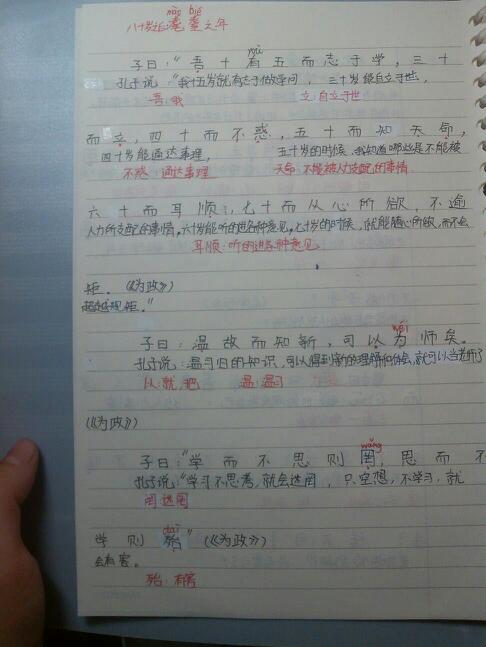 mào dié
八十岁is耄耋之年
yòu
子曰:“吾十有五而志于学,三十
孔子说:“我十五岁就有志于做学问,三十岁能自立于世,
吾:我 立:自立于世
而立,四十而不惑,五十而知天命,
四十岁能通达事理, 五十岁的时候,我知道哪些是不能被
不惑:通达事理 天命:不能被人力支配的事情
六十而耳顺,七十而从心所欲,不逾
人力所支配的事情,六十岁能听的进各种意见,七十岁的时候,就能随心所欲,而不会
耳顺:听的进各种意见
矩。《为政》)
超越规矩。”
wéi
子曰:温故而知新,可以为师矣。
孔子说:温习旧的知识,可以得到新的理解和体会,就可以当老师了
以:就,把 温:温习
(《为政》)
wǎng
子曰:“学而不思则罔,思而不
孔子说:“学习不思考,就会迷罔,只空想,不学习,就
罔:迷罔
dài
学则殆”(《为政》)
会有害。
殆:有害